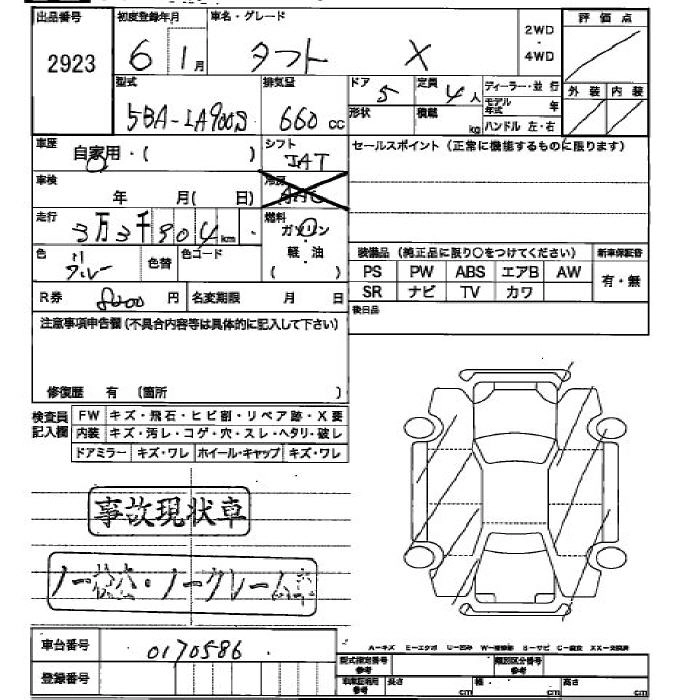 出品番号 初度登録年月 車名・グレード 2WD・4WD 評価点
2923 6 1月 タフト X
型式 排気量 ドア 定員 ディーラー・並行 外装 内装
5BA-LA900S 660cc 5 4人 モデル年式 年
形状 積載 kg ハンドル 左・右
車歴 自家用・( ) シフト IAT セールスポイント(正常に機能するものに限ります)
車検 年 月( 日) 冷房
走行 3万3千904km 燃料 ガソリン・軽油 ( )
色 色替 色コード
装備品(純正品に限り○をつけてください) 新車保証書
PS PW ABS エアB AW 有・無
SR ナビ TV カワ
R券 8200円 名変期限 月 日 後日品
注意事項申告欄(不具合内容等は具体的に記入して下さい)
修復歴 有 (箇所 )
検査員記入欄 FW キズ・飛石・ヒビ割・リペア跡・X要
内装 キズ・汚レ・コゲ・穴・スレ・ヘタリ・破レ
ドアミラー キズ・ワレ ホイール・キャップ キズ・ワレ
事故現状車
ノー検査・ノークレーム車
A-キズ E-エクボ U-凹み W-補修跡 S-サビ C-腐食 XX-交換済
車台番号 0170586
型式指定番号 参考 類別区分番号 参考
登録番号 車庫証明用 参考 長さ cm 幅 cm 高さ cm